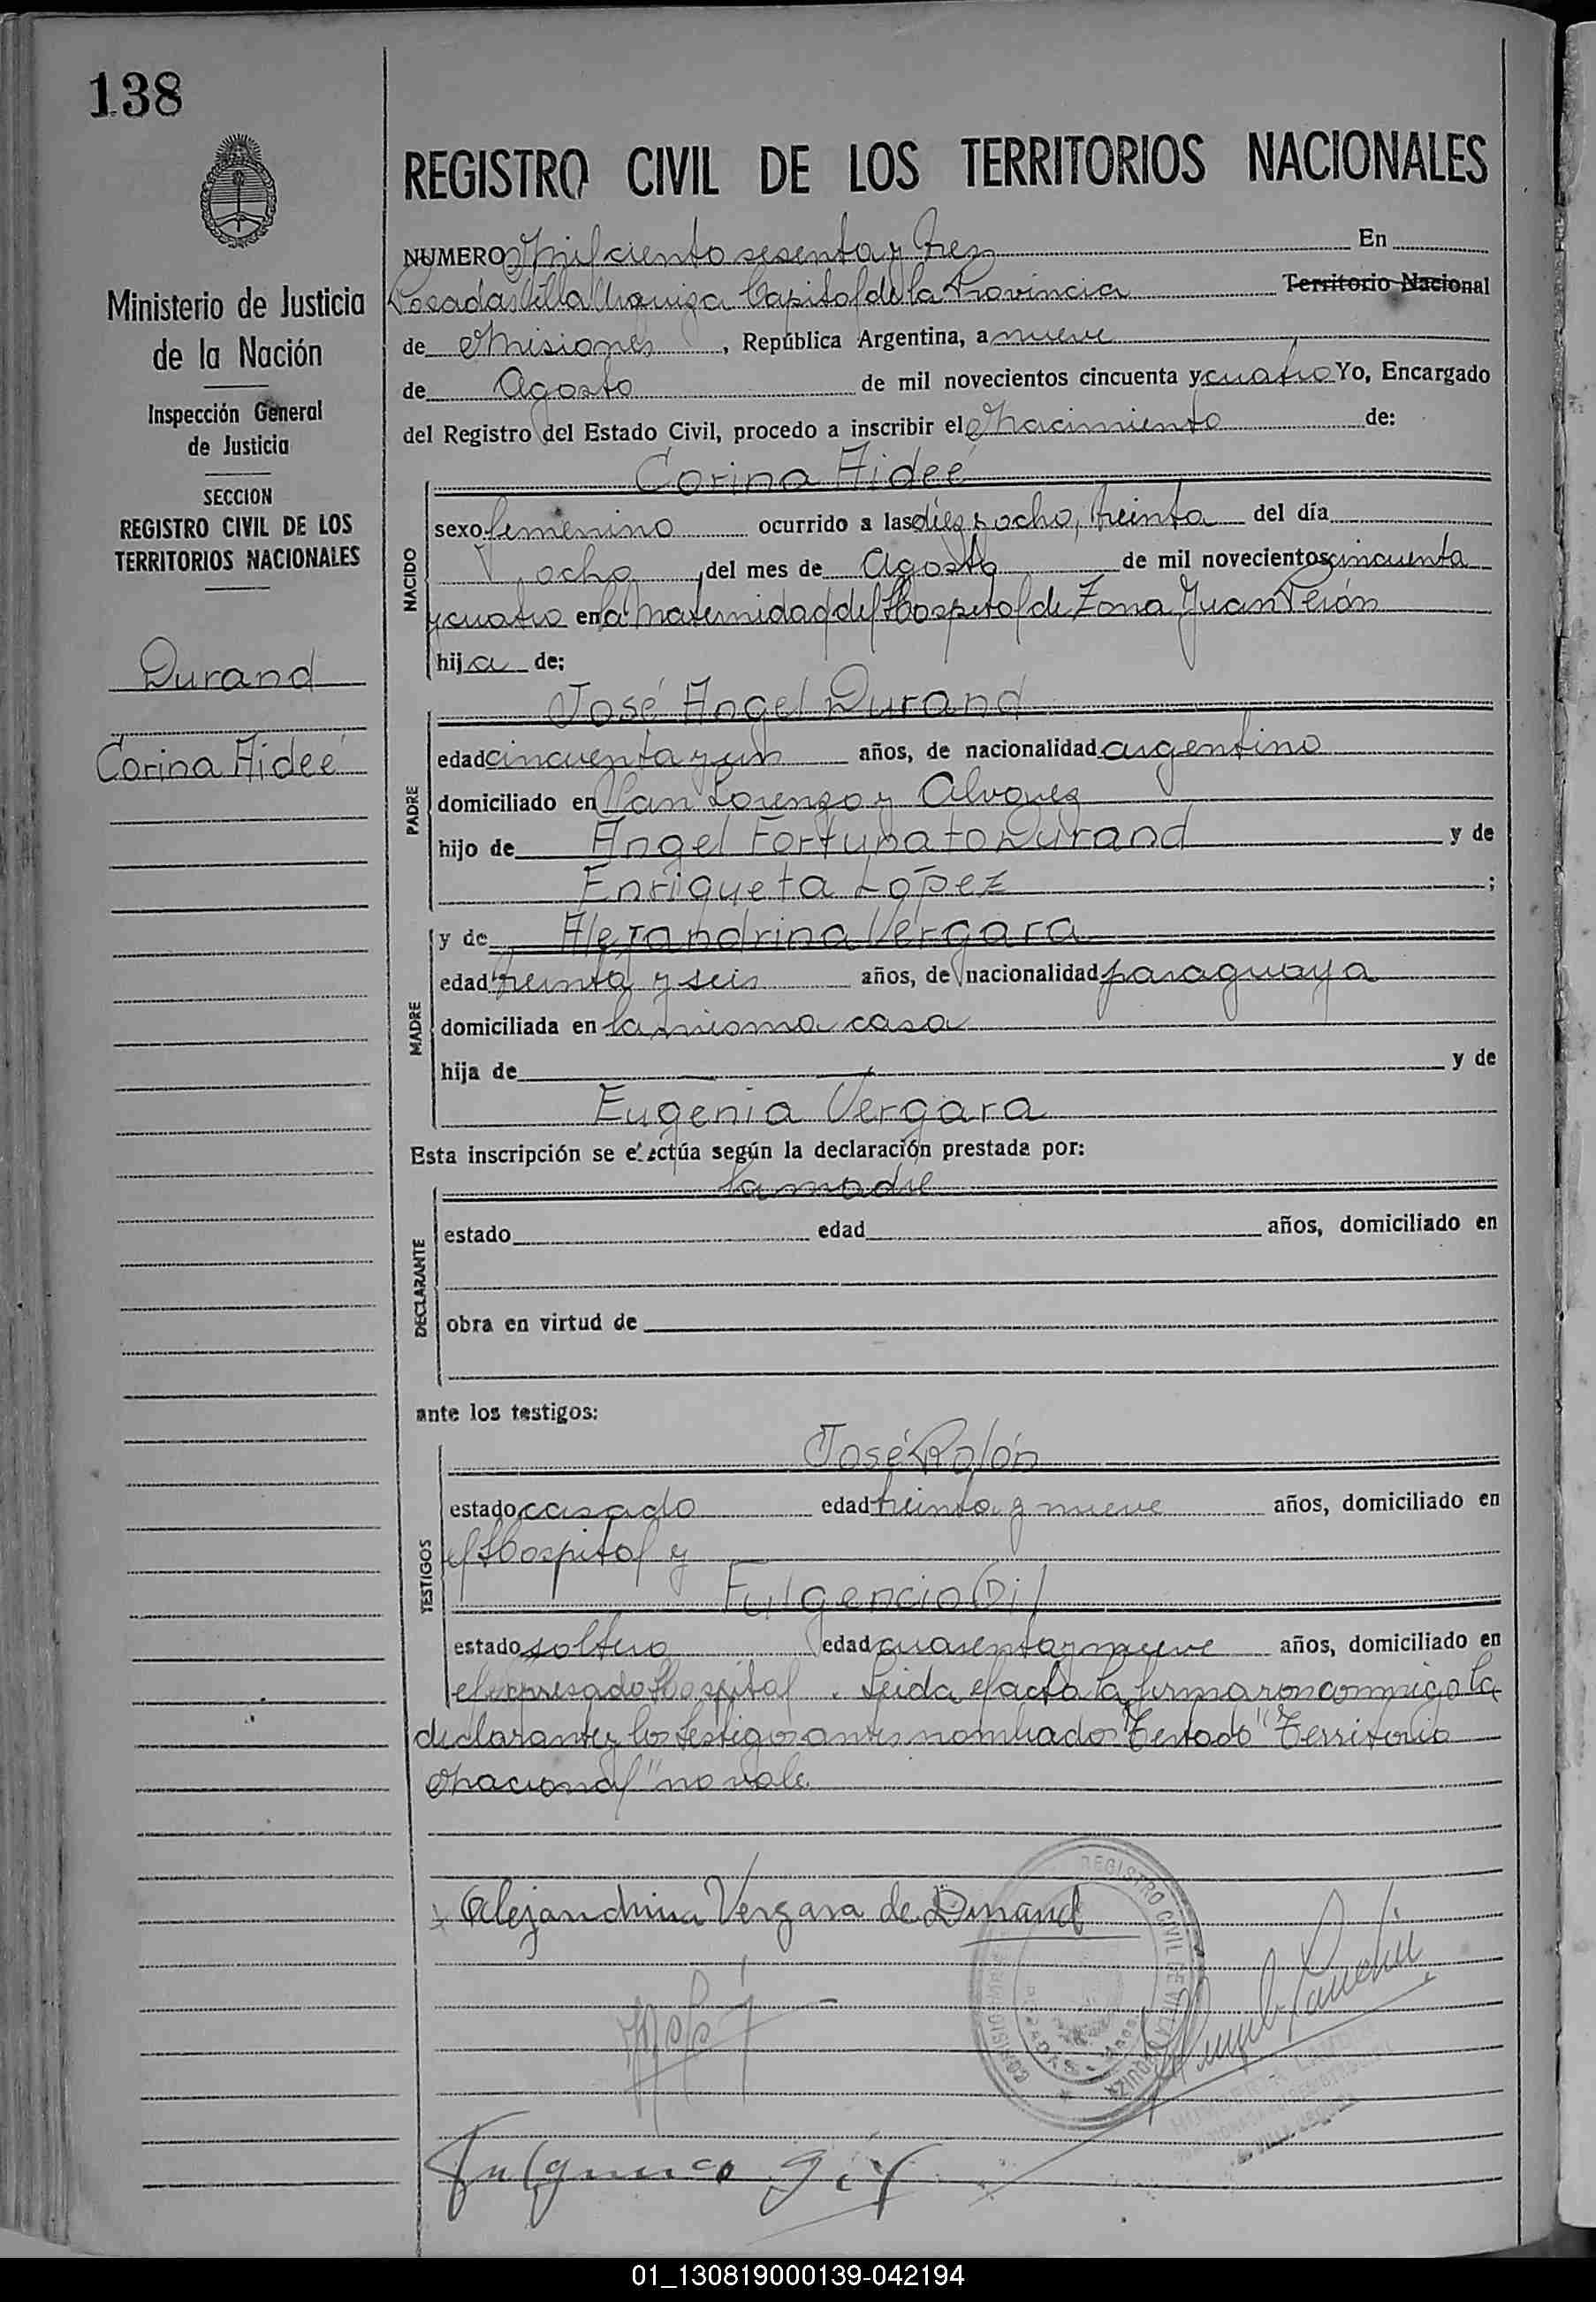 138
REGISTRO CIVIL DE LOS TERRITORIOS NACIONALES
Ministerio de Justicia
de la Nación
Inspección General
de Justicia
SECCION
REGISTRO CIVIL DE LOS
TERRITORIOS NACIONALES
Durand
Corina Aideé
NUMERO Mil ciento sesenta y tres En
Posadas Villa Urquiza Capital de la Provincia Territorio Nacional
de Misiones, República Argentina, a nueve
de Agosto de mil novecientos cincuenta y cuatro Yo, Encargado
del Registro del Estado Civil, procedo a inscribir el Nacimiento de:
Corina Aideé
NACIDO
sexo femenino ocurrido a las diez y ocho, treinta del día
ocho, del mes de Agosto de mil novecientos cincuenta
y cuatro en la Maternidad del Hospital de Zona Juan Perón
hija de:
José Angel Durand
PADRE
edad cincuenta y un años, de nacionalidad argentino
domiciliado en San Lorenzo y
hijo de Angel Fortunato Durand y de
Enriqueta López ;
MADRE
y de Alejandrina Vergara
edad treinta y seis años, de nacionalidad paraguaya
domiciliada en la misma casa
hija de y de
Eugenia Vergara
Esta inscripción se efectúa según la declaración prestada por:
la madre
DECLARANTE
estado edad años, domiciliado en
obra en virtud de
ante los testigos:
José Rolón
TESTIGOS
estado casado edad treinta y nueve años, domiciliado en
el Hospital y
Fulgencio Gil
estado soltero edad cuarenta y nueve años, domiciliado en
el expresado Hospital. Leida el acta la firmaron conmigo la
declarante y los testigos antes nombrados "Testado" "Territorio
Nacional" no vale.
Alejandrina Vergara de Durand
REGISTRO CIVIL DE VILLA URQUIZA
Fulgencio Gil
01_130819000139-042194